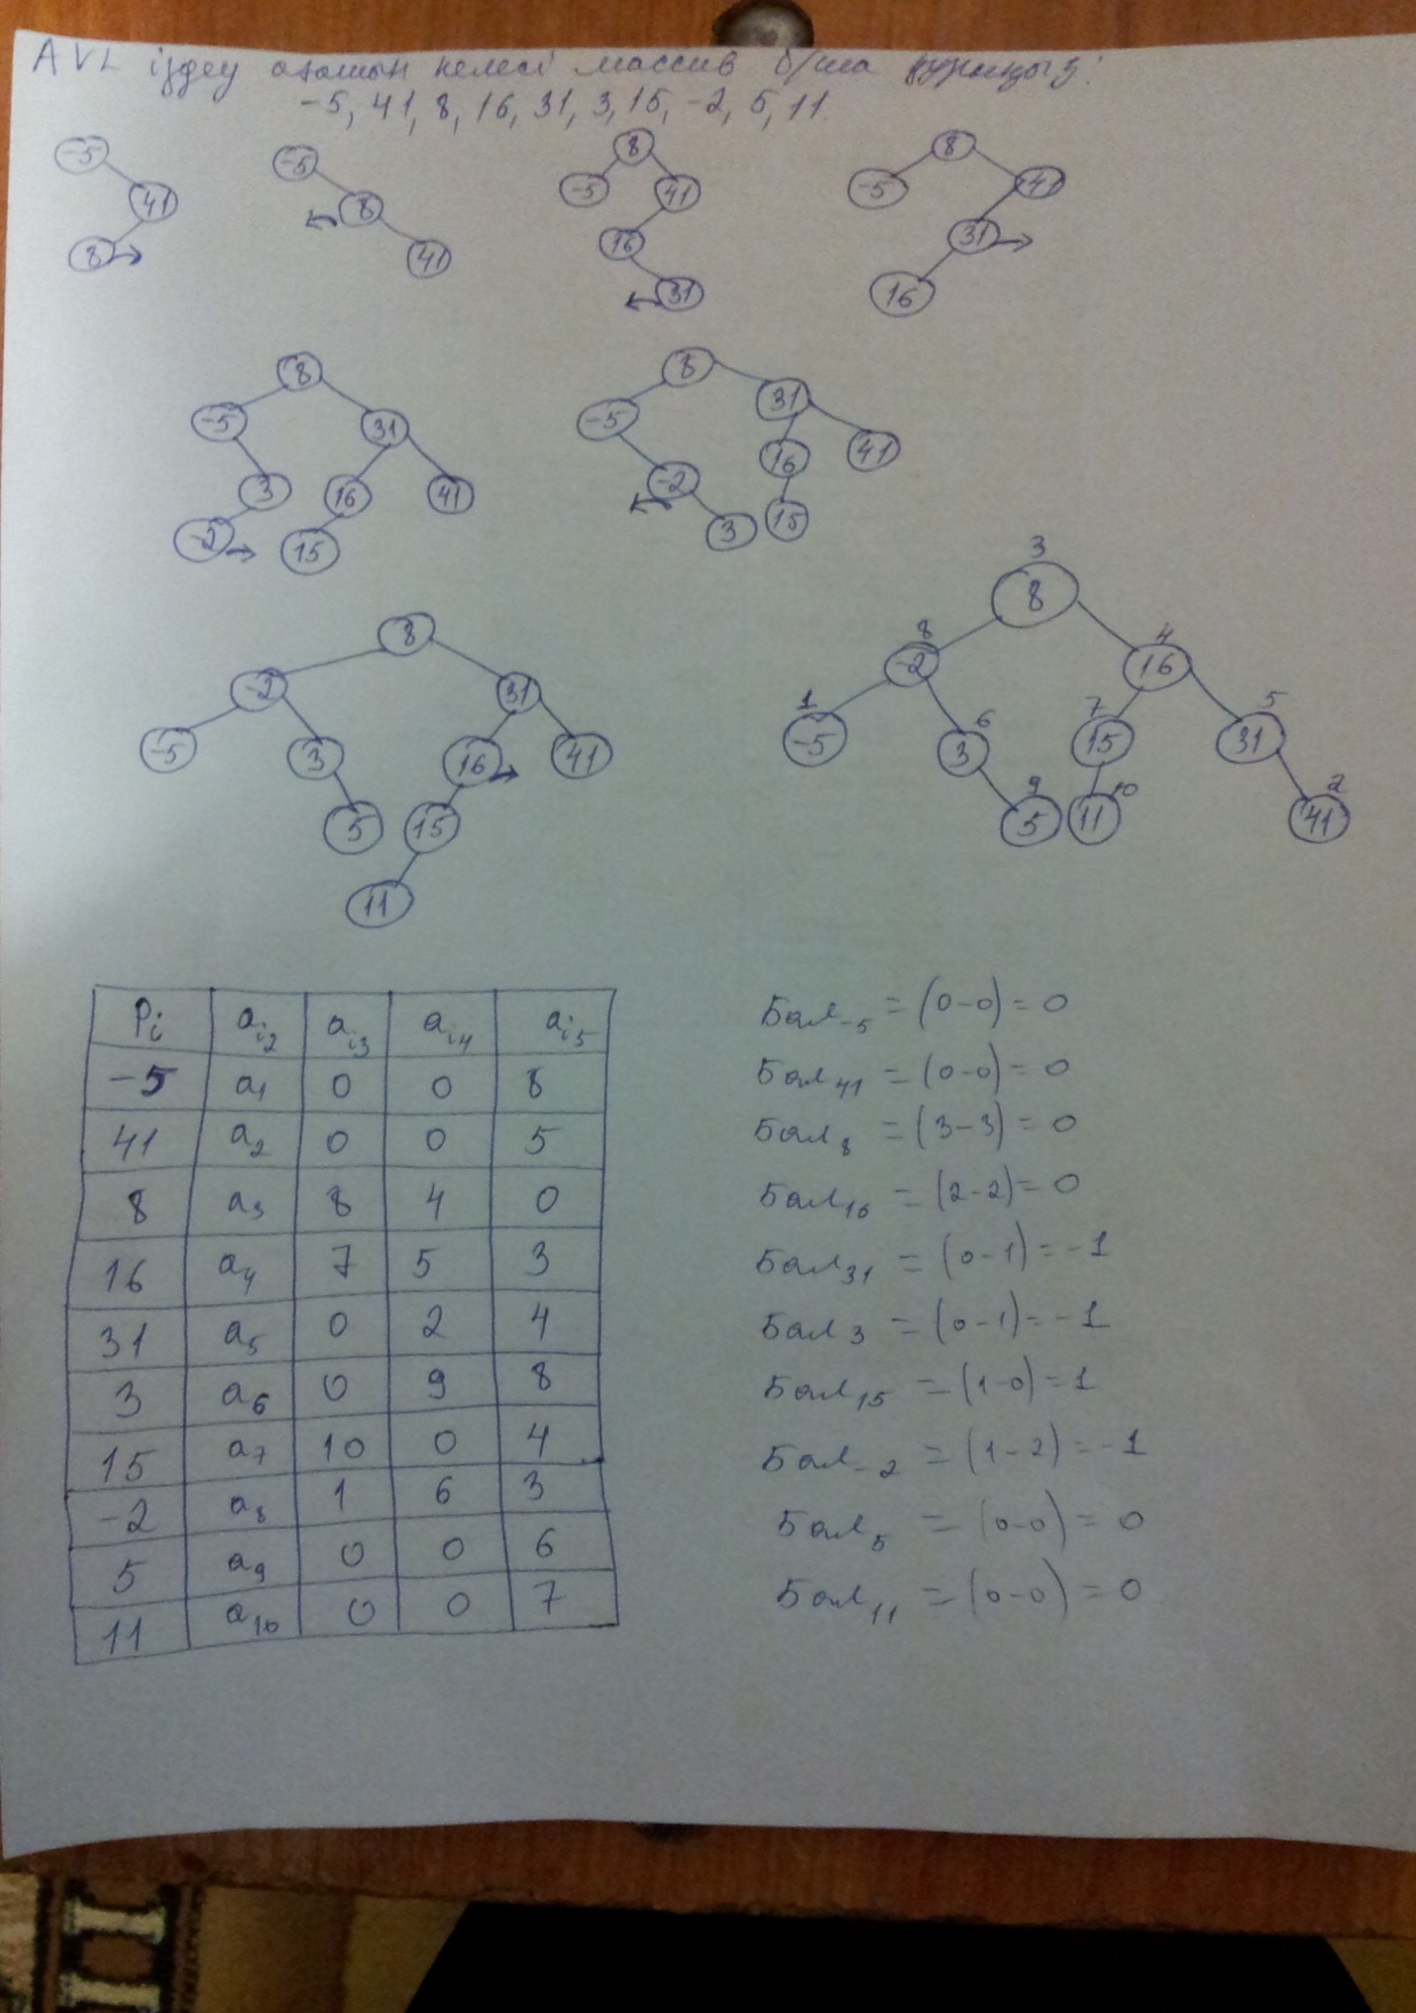 AVL іздеу ағашын келесі массив б/ша құрыңыз:
-5, 41, 8, 16, 31, 3, 15, -2, 5, 11
-5 41 8
-5 8 41
8 -5 41 16 31
8 -5 41 31 16
8 -5 31 3 16 41 -2 15
8 -5 31 16 41 -2 3 15
8 -2 31 -5 3 16 41 5 15 11
3 8
8 -2 4 16
1 -5 6 3 7 15 5 31
9 5 10 11 2 41
Pi ai2 ai3 ai4 ai5
-5 a1 0 0 8
41 a2 0 0 5
8 a3 8 4 0
16 a4 7 5 3
31 a5 0 2 4
3 a6 0 9 8
15 a7 10 0 4
-2 a8 1 6 3
5 a9 0 0 6
11 a10 0 0 7
Бал-5 = (0-0) = 0
Бал41 = (0-0) = 0
Бал8 = (3-3) = 0
Бал16 = (2-2) = 0
Бал31 = (0-1) = -1
Бал3 = (0-1) = -1
Бал15 = (1-0) = 1
Бал-2 = (1-2) = -1
Бал5 = (0-0) = 0
Бал11 = (0-0) = 0